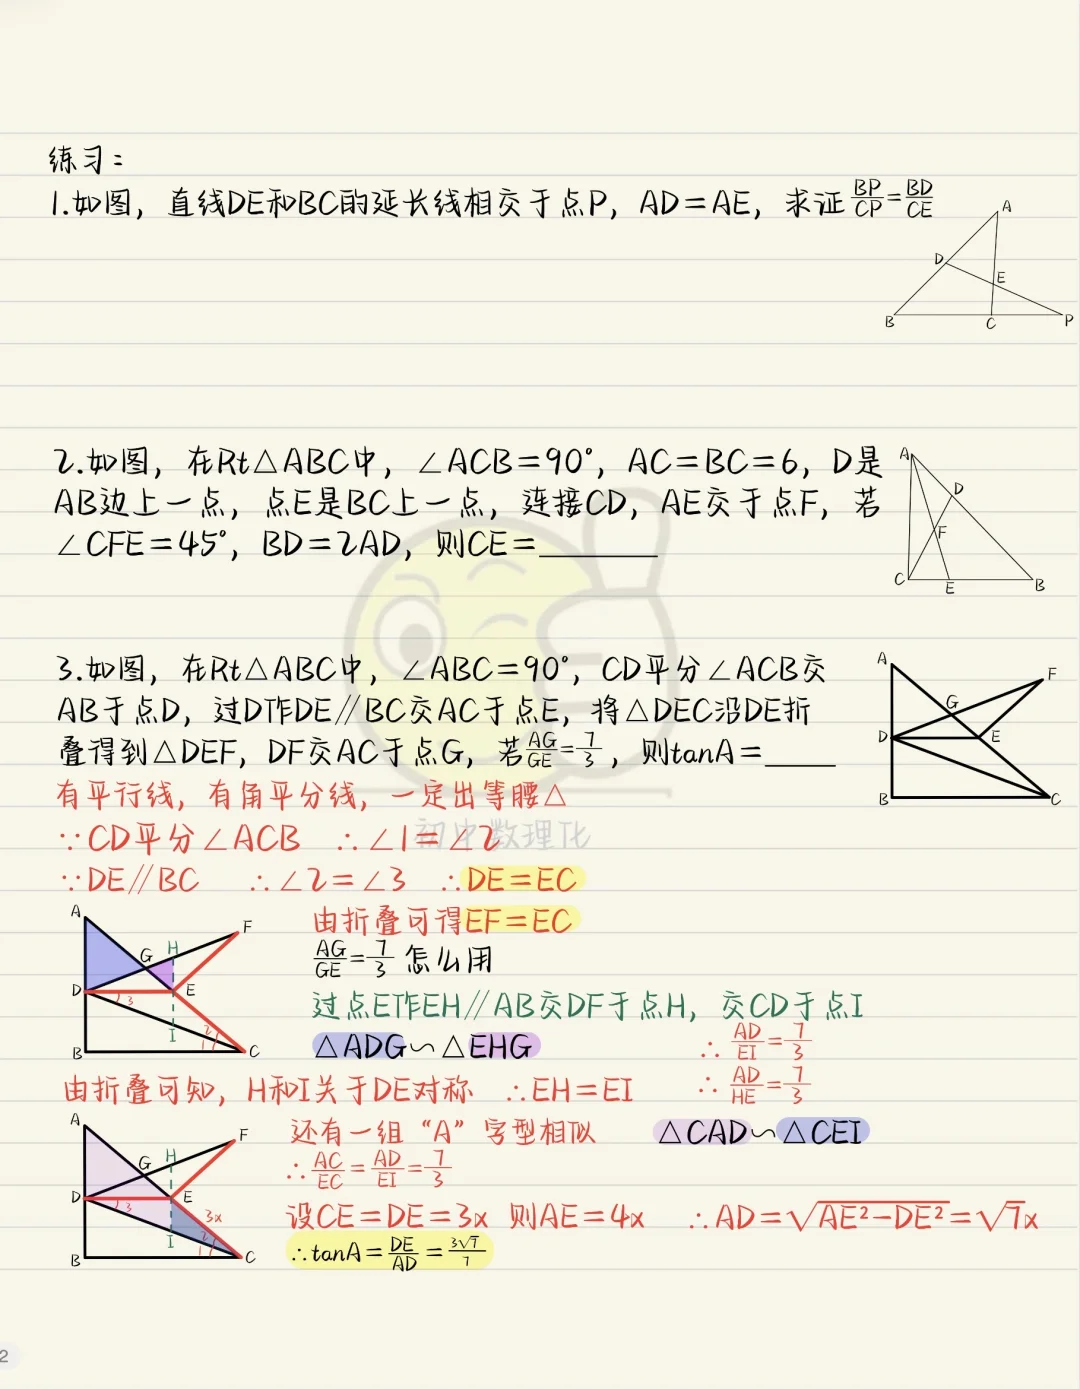 练习：
1.如图，直线DE和BC的延长线相交于点P，AD=AE，求证BP/CP=BD/CE
A
D
E
B
C
P
2.如图，在Rt△ABC中，∠ACB=90°，AC=BC=6，D是
AB边上一点，点E是BC上一点，连接CD，AE交于点F，若
∠CFE=45°，BD=2AD，则CE=______
A
D
F
C
E
B
3.如图，在Rt△ABC中，∠ABC=90°，CD平分∠ACB交
AB于点D，过D作DE∥BC交AC于点E，将△DEC沿DE折
叠得到△DEF，DF交AC于点G，若AG/GE=7/3，则tanA=____
A
F
G
D
E
B
C
有平行线，有角平分线，一定出等腰△
初中数理化
∵CD平分∠ACB ∴∠1=∠2
∵DE∥BC ∴∠2=∠3 ∴DE=EC
A
F
G
H
D
3
E
I
2
1
B
C
由折叠可得EF=EC
AG/GE=7/3 怎么用
过点E作EH∥AB交DF于点H，交CD于点I
△ADG∽△EHG ∴AD/EI=7/3
∴AD/HE=7/3
由折叠可知，H和I关于DE对称 ∴EH=EI
A
F
G
H
D
3
E
3x
I
2
1
B
C
还有一组“A”字型相似 △CAD∽△CEI
∴AC/EC=AD/EI=7/3
设CE=DE=3x 则AE=4x ∴AD=√AE²-DE²=√7x
∴tanA=DE/AD=3√7/7
2